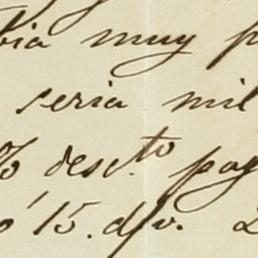 bia muy p
seria mil
% desc.to pag
o' 15. d/v. 2